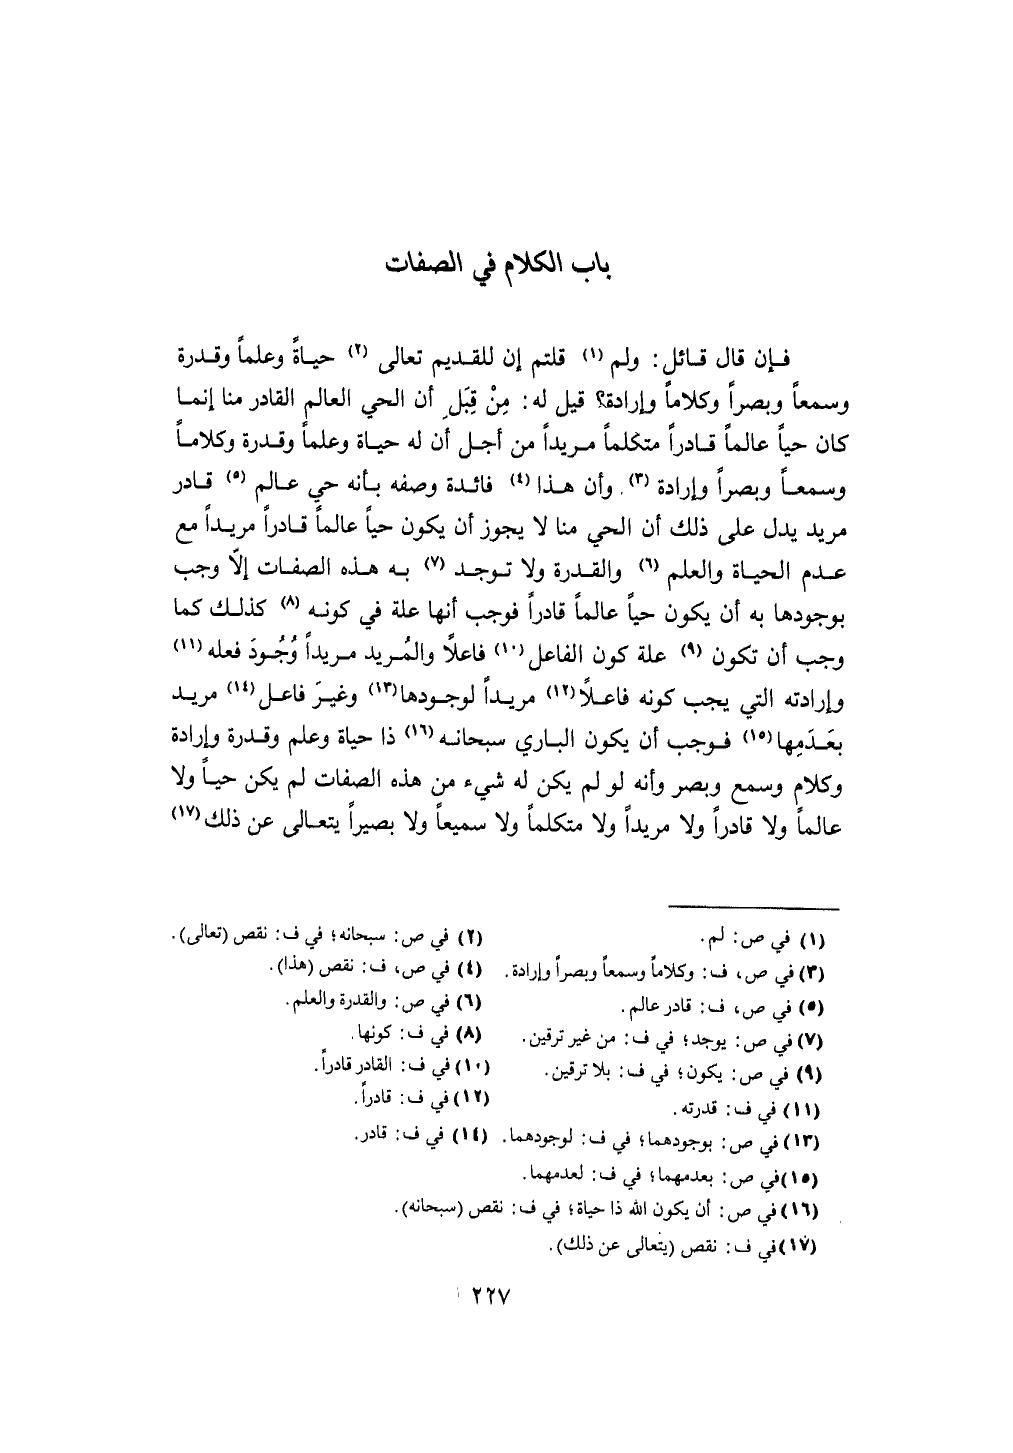 باب الكلام في الصفات
فإن قال قائل: ولم (١) قلتم إن للقديم تعالى (٢) حياةً وعلماً وقدرة
وسمعاً وبصراً وكلاماً وإرادة؟ قيل له: مِنْ قِبَلِ أن الحي العالم القادر منا إنما
كان حياً عالماً قادراً متكلماً مريداً من أجل أن له حياة وعلماً وقدرة وكلاماً
وسمعاً وبصراً وإرادة (٣). وأن هذا (٤) فائدة وصفه بأنه حي عالم (٥) قادر
مريد يدل على ذلك أن الحي منا لا يجوز أن يكون حياً عالماً قادراً مريداً مع
عدم الحياة والعلم (٦) والقدرة ولا توجد (٧) به هذه الصفات إلاّ وجب
بوجودها به أن يكون حياً عالماً قادراً فوجب أنها علة في كونه (٨) كذلك كما
وجب أن تكون (٩) علة كون الفاعل (١٠) فاعلاً والمُريد مريداً وُجُودَ فعله (١١)
وإرادته التي يجب كونه فاعلاً (١٢) مريداً لوجودها (١٣) وغيرَ فاعل (١٤) مريد
بعَدَمِها (١٥) فوجب أن يكون الباري سبحانه (١٦) ذا حياة وعلم وقدرة وإرادة
وكلام وسمع وبصر وأنه لو لم يكن له شيء من هذه الصفات لم يكن حياً ولا
عالماً ولا قادراً ولا مريداً ولا متكلماً ولا سميعاً ولا بصيراً يتعالى عن ذلك (١٧)
(١) في ص: لم. (٢) في ص: سبحانه؛ في ف: نقص (تعالى).
(٣) في ص، ف: وكلاماً وسمعاً وبصراً وإرادة. (٤) في ص، ف: نقص (هذا).
(٥) في ص، ف: قادر عالم. (٦) في ص: والقدرة والعلم.
(٧) في ص: يوجد؛ في ف: من غير ترقين. (٨) في ف: كونها.
(٩) في ص: يكون؛ في ف: بلا ترقين. (١٠) في ف: القادر قادراً.
(١١) في ف: قدرته. (١٢) في ف: قادراً.
(١٣) في ص: بوجودهما؛ في ف: لوجودهما. (١٤) في ف: قادر.
(١٥) في ص: بعدمهما؛ في ف: لعدمهما.
(١٦) في ص: أن يكون الله ذا حياة؛ في ف: نقص (سبحانه).
(١٧) في ف: نقص (يتعالى عن ذلك).
٢٢٧